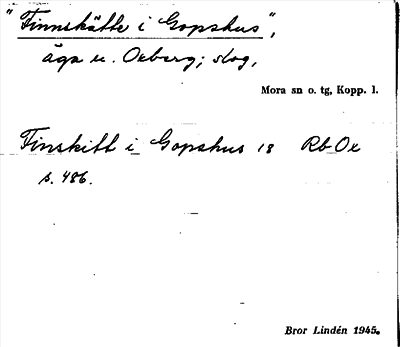 "Finnskätte i Gopshus",
äga u. Oxberg; skog,
Mora sn o. tg, Kopp. l.
Finskitt i Gopshus 18 Rb Ox
s. 486.
Bror Lindén 1945.